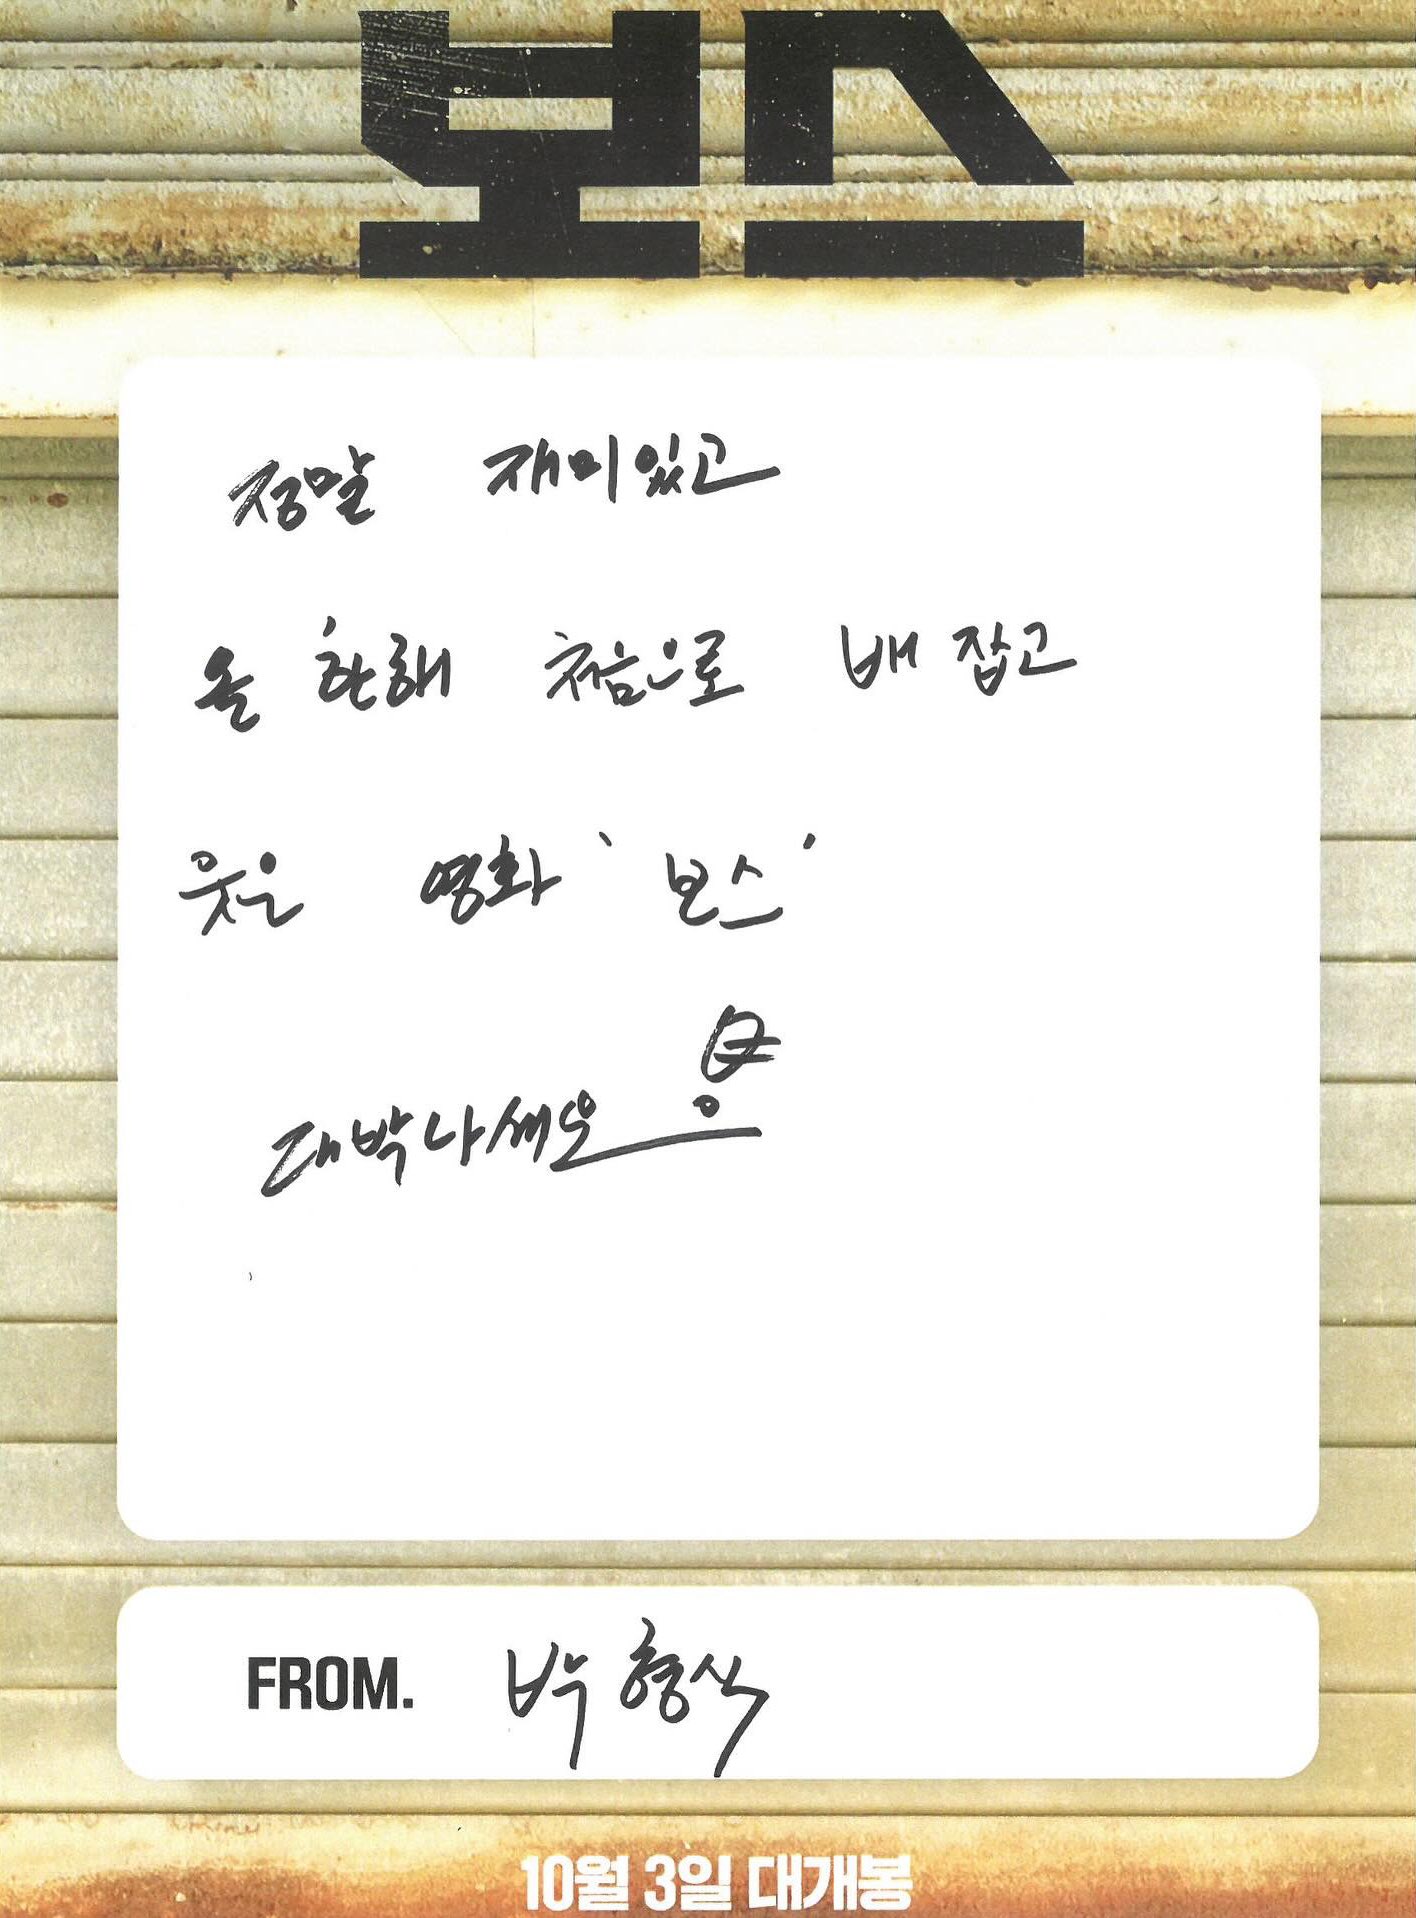 보스
정말 재미있고
올 한해 처음으로 배 잡고
웃은 영화 '보스'
대박나세요
FROM. 박형식
10월 3일 대개봉